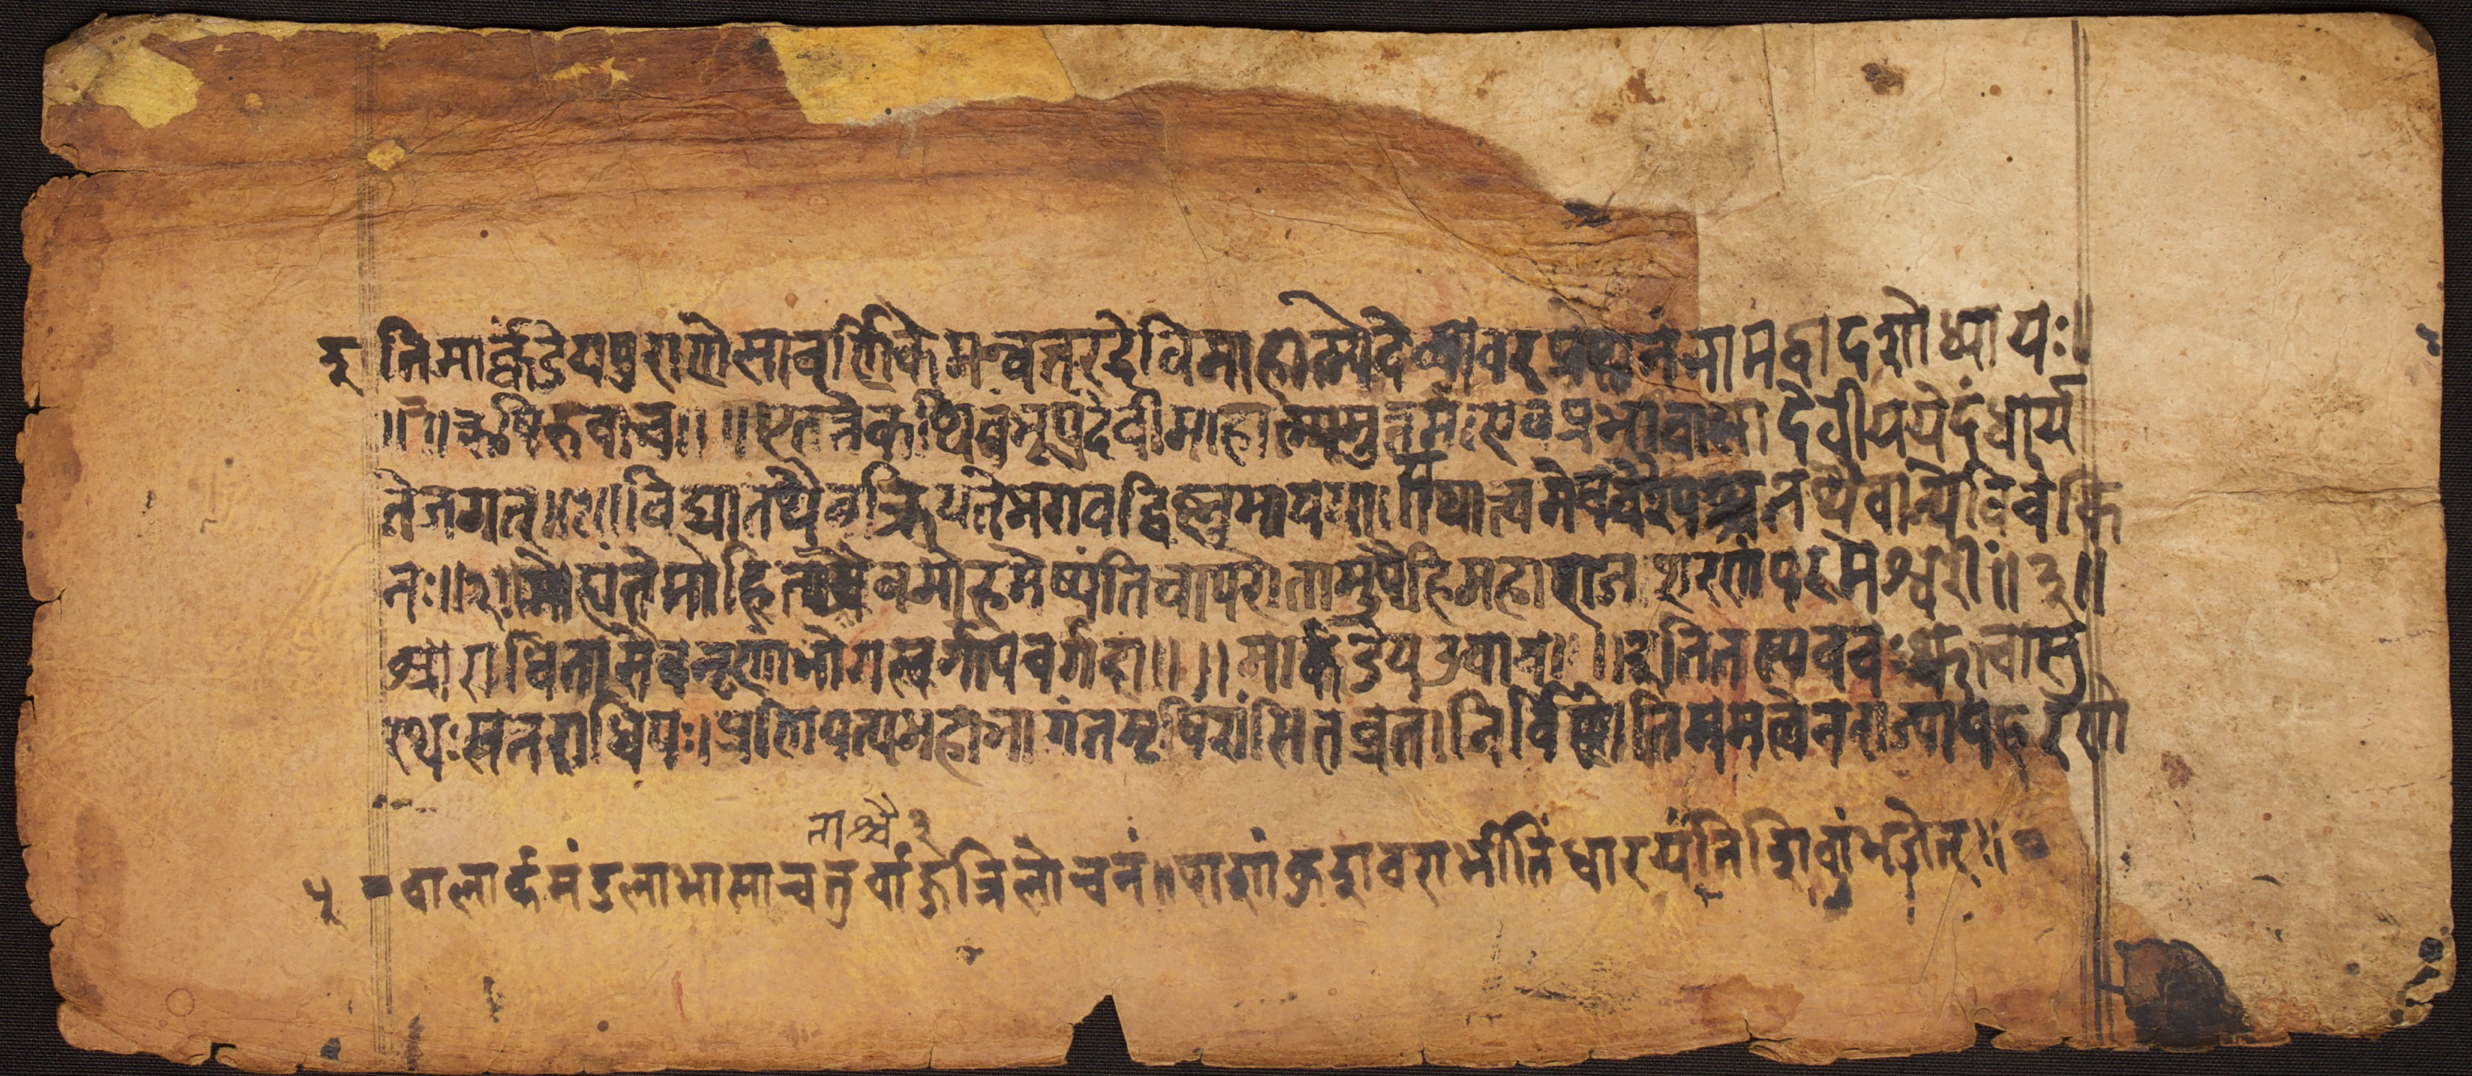 इति मार्क्कंडेयपुराणेसावर्णिकेमन्वन्तरदेविमाहात्म्येदेव्यावरप्रदानंनामद्वादशोध्यायः॥
॥ ॥ऋषिरुवाच॥ ॥एतत्तेकथितंभूपदेवीमाहात्म्यमुत्तमं॥एवंप्रभावासादेवीययेदंधार्य
तेजगत्॥१॥विद्यातथैवक्रियतेभगवद्विष्णुमायया॥तयात्वमेषवैश्यश्चतथैवान्येविवेकि
नः॥२॥मोह्यंतेमोहिताश्चैवमोहमेष्यंतिचापरे॥तामुपैहिमहाराजशरणंपरमेश्वरीं॥३॥
आराधितासैवनृणांभोगस्वर्गापवर्गदा॥ ॥मार्कंडेयउवाच॥ ॥इतितस्यवचःश्रुत्वासु
रथःसनराधिपः॥प्रणिपत्यमहाभागंतमृषिंशंसितव्रतं॥निर्विण्णोतिममत्वेनराज्यापहरणे
ताश्चै३
५ बालार्कमंडलाभासाचतुर्बाहुंत्रिलोचनं॥पाशांकुशवराभीतिंधारयंतिशिवांभजेत्॥